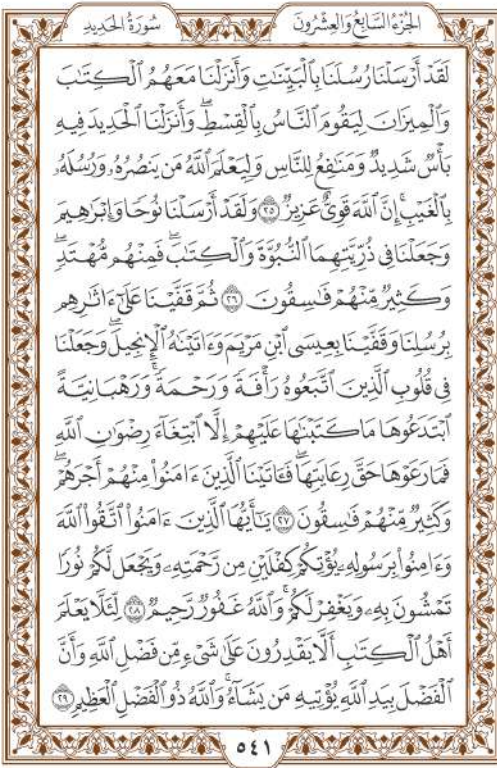 الجُزْءُ السَّابِعُ وَالعِشْرُونَ سُورَةُ الحَدِيدِ
لَقَدْ أَرْسَلْنَا رُسُلَنَا بِالْبَيِّنَٰتِ وَأَنزَلْنَا مَعَهُمُ ٱلْكِتَٰبَ
وَٱلْمِيزَانَ لِيَقُومَ ٱلنَّاسُ بِٱلْقِسْطِ ۖ وَأَنزَلْنَا ٱلْحَدِيدَ فِيهِ
بَأْسٌ شَدِيدٌ وَمَنَٰفِعُ لِلنَّاسِ وَلِيَعْلَمَ ٱللَّهُ مَن يَنصُرُهُۥ وَرُسُلَهُۥ
بِٱلْغَيْبِ ۚ إِنَّ ٱللَّهَ قَوِيٌّ عَزِيزٌ ٢٥ وَلَقَدْ أَرْسَلْنَا نُوحًا وَإِبْرَٰهِيمَ
وَجَعَلْنَا فِي ذُرِّيَّتِهِمَا ٱلنُّبُوَّةَ وَٱلْكِتَٰبَ ۖ فَمِنْهُم مُّهْتَدٍ ۖ
وَكَثِيرٌ مِّنْهُمْ فَٰسِقُونَ ٢٦ ثُمَّ قَفَّيْنَا عَلَىٰٓ ءَاثَٰرِهِم
بِرُسُلِنَا وَقَفَّيْنَا بِعِيسَى ٱبْنِ مَرْيَمَ وَءَاتَيْنَٰهُ ٱلْإِنجِيلَ ۖ وَجَعَلْنَا
فِي قُلُوبِ ٱلَّذِينَ ٱتَّبَعُوهُ رَأْفَةً وَرَحْمَةً ۚ وَرَهْبَانِيَّةً
ٱبْتَدَعُوهَا مَا كَتَبْنَٰهَا عَلَيْهِمْ إِلَّا ٱبْتِغَآءَ رِضْوَٰنِ ٱللَّهِ
فَمَا رَعَوْهَا حَقَّ رِعَايَتِهَا ۖ فَـَٔاتَيْنَا ٱلَّذِينَ ءَامَنُوا۟ مِنْهُمْ أَجْرَهُمْ ۖ
وَكَثِيرٌ مِّنْهُمْ فَٰسِقُونَ ٢٧ يَٰٓأَيُّهَا ٱلَّذِينَ ءَامَنُوا۟ ٱتَّقُوا۟ ٱللَّهَ
وَءَامِنُوا۟ بِرَسُولِهِۦ يُؤْتِكُمْ كِفْلَيْنِ مِن رَّحْمَتِهِۦ وَيَجْعَل لَّكُمْ نُورًا
تَمْشُونَ بِهِۦ وَيَغْفِرْ لَكُمْ ۚ وَٱللَّهُ غَفُورٌ رَّحِيمٌ ٢٨ لِّئَلَّا يَعْلَمَ
أَهْلُ ٱلْكِتَٰبِ أَلَّا يَقْدِرُونَ عَلَىٰ شَيْءٍ مِّن فَضْلِ ٱللَّهِ ۙ وَأَنَّ
ٱلْفَضْلَ بِيَدِ ٱللَّهِ يُؤْتِيهِ مَن يَشَآءُ ۚ وَٱللَّهُ ذُو ٱلْفَضْلِ ٱلْعَظِيمِ ٢٩
٥٤١